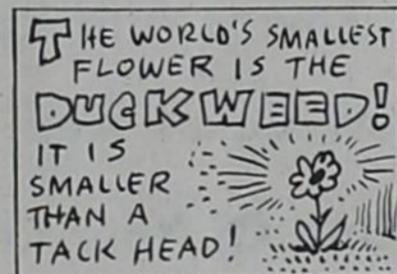 THE WORLD'S SMALLEST
FLOWER IS THE
DUCKWEED!
IT IS
SMALLER
THAN A
TACK HEAD!